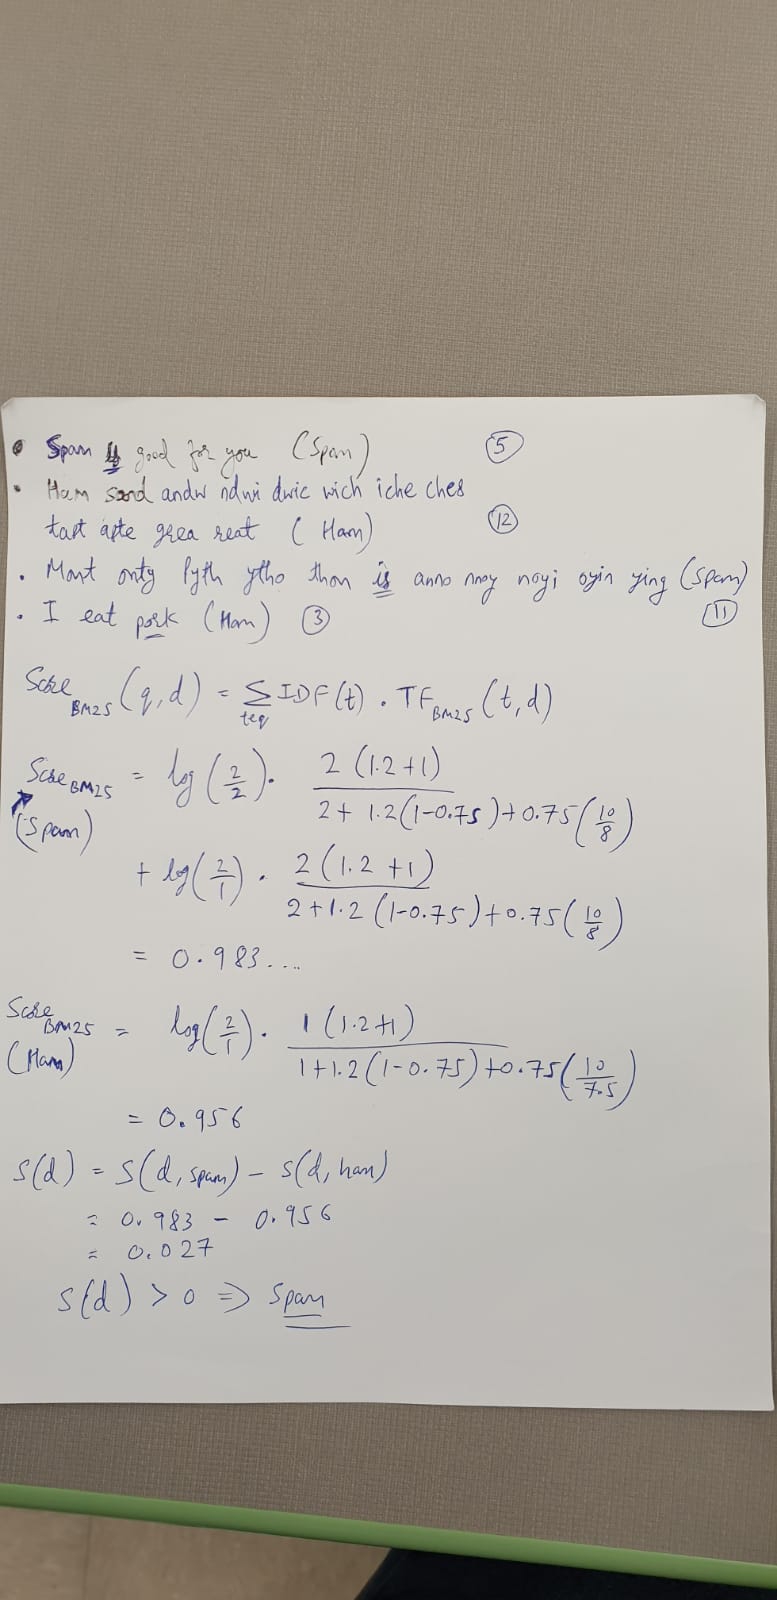 • Spam is good for you (Spam) ⑤
• Ham sand andw ndwi dwic wich iche ches
tast aste grea reat (Ham) ⑫
• Mont onty Pyth ytho thon is anno nnoy noyi oyin ying (Spam)
⑪
• I eat pork (Ham) ③
Score BM25 (q,d) = Σ t∈q IDF(t) . TF BM25 (t,d)
Score BM25 = log(2/2). 2(1.2+1) / 2+ 1.2(1-0.75)+0.75(10/8)
(Spam)
+ log(2/1) . 2(1.2+1) / 2+1.2(1-0.75)+0.75(10/8)
= 0.983....
Score BM25 = log(2/1). 1(1.2+1) / 1+1.2(1-0.75)+0.75(10/7.5)
(Ham)
= 0.956
S(d) = S(d, spam) - S(d, ham)
= 0.983 - 0.956
= 0.027
S(d) > 0 ⇒ Spam